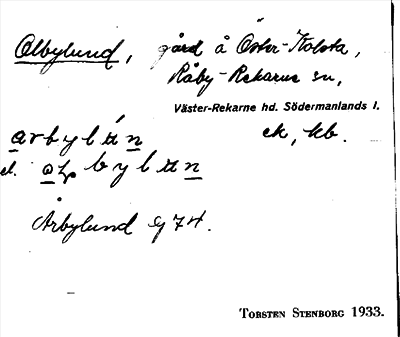 Olbylund, gård å Öster-Kolsta,
Råby-Rekarne sn,
Väster-Rekarne hd. Södermanlands l.
ek, kb.
el.
Årbylund 974.
TORSTEN STENBORG 1933.